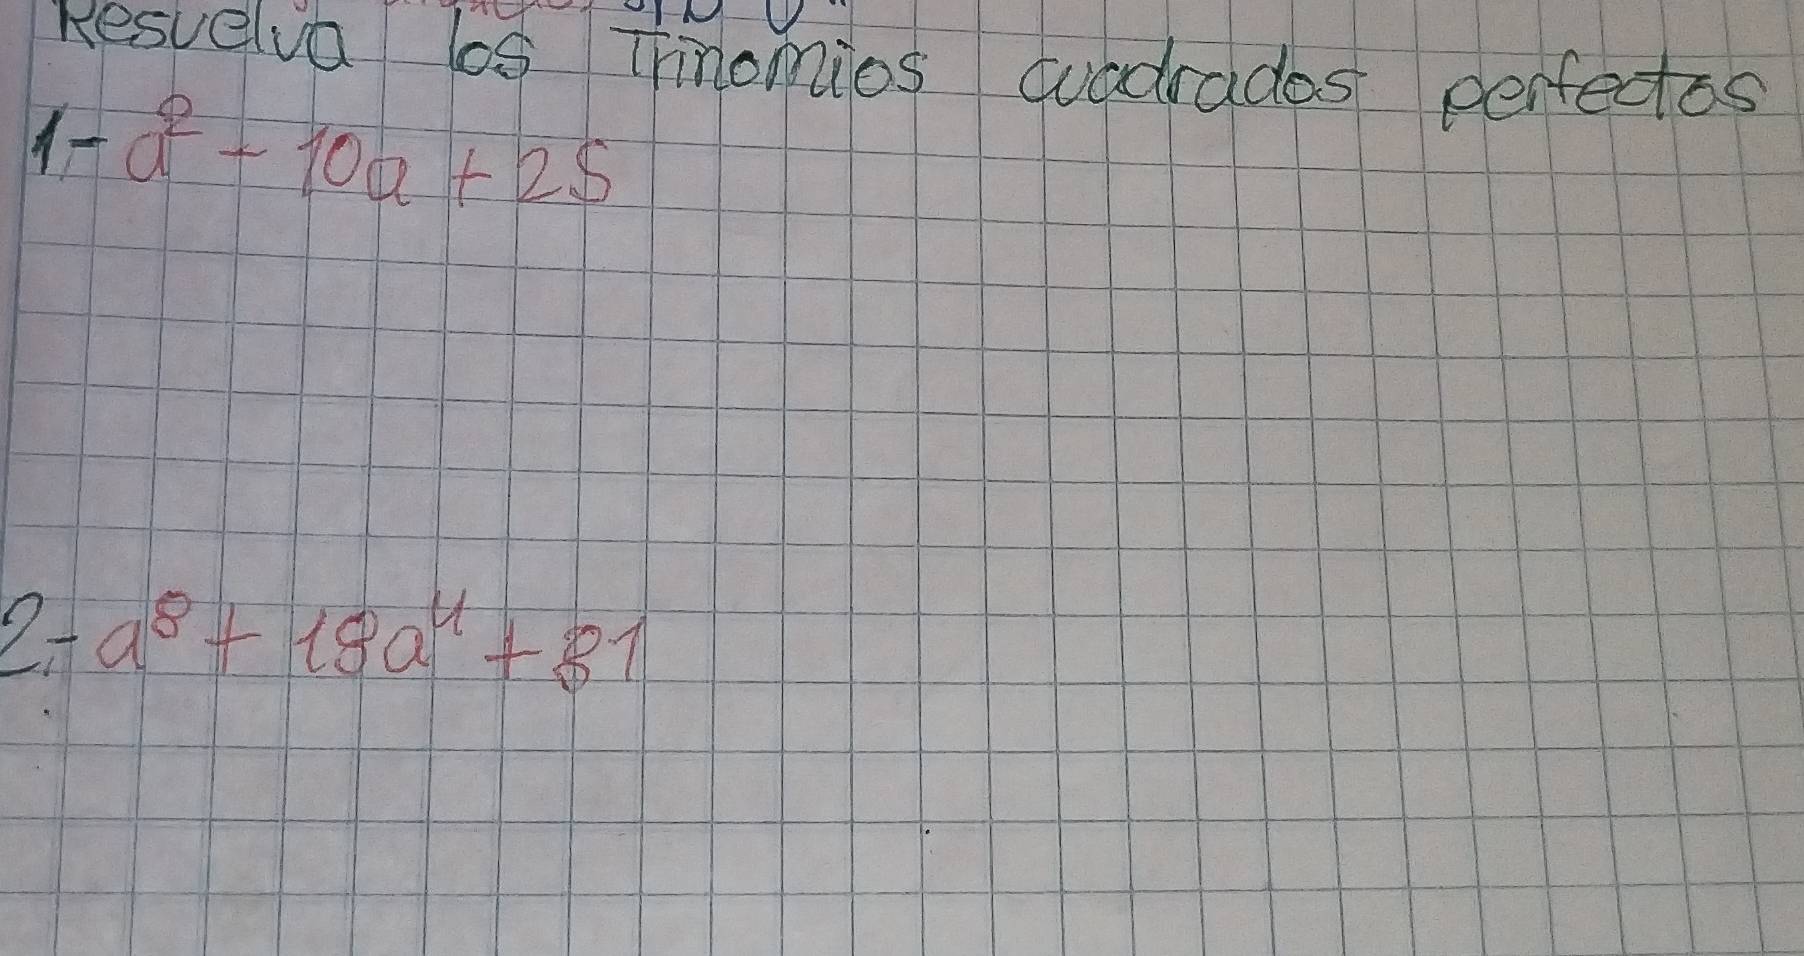 Resuelva los Trinomios cuadrados perfectos
1- a² - 10a + 25
2.- a⁸ + 18a⁴ + 81